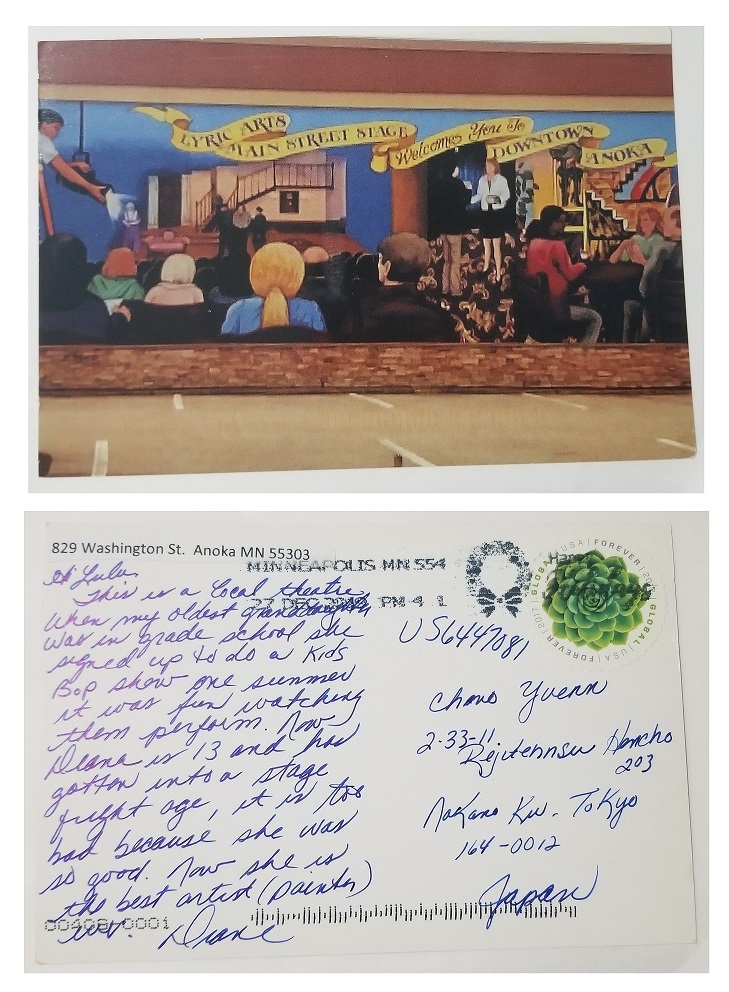 LYRIC ARTS
MAIN STREET STAGE
Welcomes You To
DOWNTOWN
ANOKA
829 Washington St. Anoka MN 55303
MINNEAPOLIS MN 554
27 DEC PM 4 L
GLOBAL USA FOREVER 2017 GLOBAL USA FOREVER
Hi Lulu,
This is a local theatre
When my oldest granddaughter
was in grade school she
signed up to do a Kids
Bop show one summer
it was fun watching
them perform. Now
Diana is 13 and has
gotten into a stage
fright age, it is too
bad because she was
so good. Now she is
the best artist (painter)
ever. Diane
US6447081
Chono Yuenn
2-33-11
Rejitennsu Honcho
203
Nakano Ku. Tokyo
164-0012
Japan
00408 0001